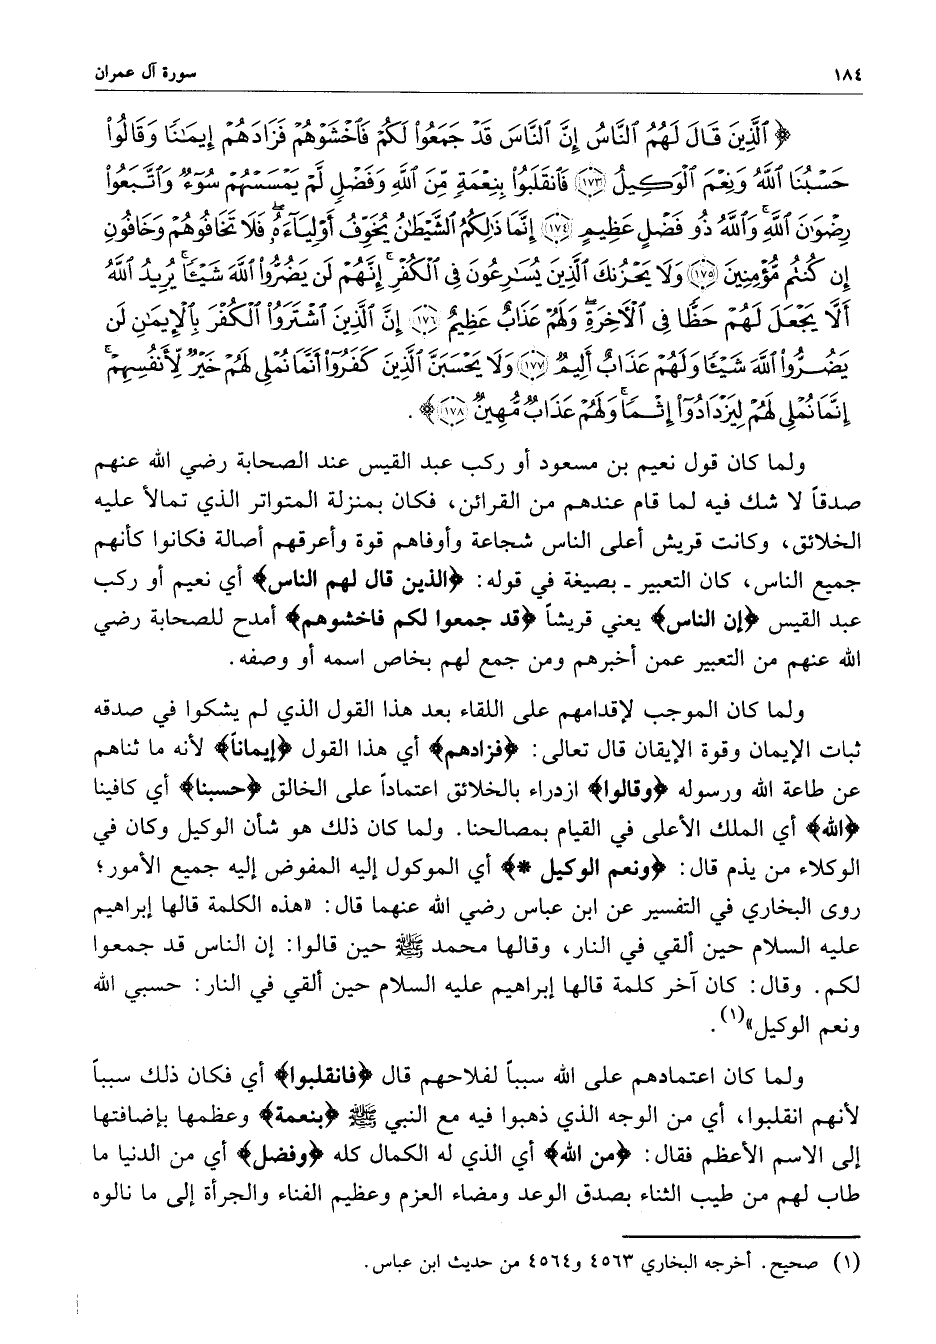 ١٨٤ سورة آل عمران
﴿ ٱلَّذِينَ قَالَ لَهُمُ ٱلنَّاسُ إِنَّ ٱلنَّاسَ قَدْ جَمَعُوا۟ لَكُمْ فَٱخْشَوْهُمْ فَزَادَهُمْ إِيمَـٰنًا وَقَالُوا۟
حَسْبُنَا ٱللَّهُ وَنِعْمَ ٱلْوَكِيلُ ﴿١٧٣﴾ فَٱنقَلَبُوا۟ بِنِعْمَةٍ مِّنَ ٱللَّهِ وَفَضْلٍ لَّمْ يَمْسَسْهُمْ سُوٓءٌ وَٱتَّبَعُوا۟
رِضْوَٰنَ ٱللَّهِ ۗ وَٱللَّهُ ذُو فَضْلٍ عَظِيمٍ ﴿١٧٤﴾ إِنَّمَا ذَٰلِكُمُ ٱلشَّيْطَـٰنُ يُخَوِّفُ أَوْلِيَآءَهُۥ ۖ فَلَا تَخَافُوهُمْ وَخَافُونِ
إِن كُنتُم مُّؤْمِنِينَ ﴿١٧٥﴾ وَلَا يَحْزُنكَ ٱلَّذِينَ يُسَـٰرِعُونَ فِى ٱلْكُفْرِ ۚ إِنَّهُمْ لَن يَضُرُّوا۟ ٱللَّهَ شَيْـًٔا ۗ يُرِيدُ ٱللَّهُ
أَلَّا يَجْعَلَ لَهُمْ حَظًّا فِى ٱلْـَٔاخِرَةِ ۖ وَلَهُمْ عَذَابٌ عَظِيمٌ ﴿١٧٦﴾ إِنَّ ٱلَّذِينَ ٱشْتَرَوُا۟ ٱلْكُفْرَ بِٱلْإِيمَـٰنِ لَن
يَضُرُّوا۟ ٱللَّهَ شَيْـًٔا وَلَهُمْ عَذَابٌ أَلِيمٌ ﴿١٧٧﴾ وَلَا يَحْسَبَنَّ ٱلَّذِينَ كَفَرُوٓا۟ أَنَّمَا نُمْلِى لَهُمْ خَيْرٌ لِّأَنفُسِهِمْ ۚ
إِنَّمَا نُمْلِى لَهُمْ لِيَزْدَادُوٓا۟ إِثْمًا ۚ وَلَهُمْ عَذَابٌ مُّهِينٌ ﴿١٧٨﴾ ﴾.
ولما كان قول نعيم بن مسعود أو ركب عبد القيس عند الصحابة رضي الله عنهم
صدقاً لا شك فيه لما قام عندهم من القرائن، فكان بمنزلة المتواتر الذي تمالأ عليه
الخلائق، وكانت قريش أعلى الناس شجاعة وأوفاهم قوة وأعرقهم أصالة فكانوا كأنهم
جميع الناس، كان التعبير ـ بصيغة في قوله: ﴿الذين قال لهم الناس﴾ أي نعيم أو ركب
عبد القيس ﴿إن الناس﴾ يعني قريشاً ﴿قد جمعوا لكم فاخشوهم﴾ أمدح للصحابة رضي
الله عنهم من التعبير عمن أخبرهم ومن جمع لهم بخاص اسمه أو وصفه.
ولما كان الموجب لإقدامهم على اللقاء بعد هذا القول الذي لم يشكوا في صدقه
ثبات الإيمان وقوة الإيقان قال تعالى: ﴿فزادهم﴾ أي هذا القول ﴿إيماناً﴾ لأنه ما ثناهم
عن طاعة الله ورسوله ﴿وقالوا﴾ ازدراء بالخلائق اعتماداً على الخالق ﴿حسبنا﴾ أي كافينا
﴿الله﴾ أي الملك الأعلى في القيام بمصالحنا. ولما كان ذلك هو شأن الوكيل وكان في
الوكلاء من يذم قال: ﴿ونعم الوكيل *﴾ أي الموكول إليه المفوض إليه جميع الأمور؛
روى البخاري في التفسير عن ابن عباس رضي الله عنهما قال: «هذه الكلمة قالها إبراهيم
عليه السلام حين ألقي في النار، وقالها محمد ﷺ حين قالوا: إن الناس قد جمعوا
لكم. وقال: كان آخر كلمة قالها إبراهيم عليه السلام حين ألقي في النار: حسبي الله
ونعم الوكيل»(١).
ولما كان اعتمادهم على الله سبباً لفلاحهم قال ﴿فانقلبوا﴾ أي فكان ذلك سبباً
لأنهم انقلبوا، أي من الوجه الذي ذهبوا فيه مع النبي ﷺ ﴿بنعمة﴾ وعظمها بإضافتها
إلى الاسم الأعظم فقال: ﴿من الله﴾ أي الذي له الكمال كله ﴿وفضل﴾ أي من الدنيا ما
طاب لهم من طيب الثناء بصدق الوعد ومضاء العزم وعظيم الفناء والجرأة إلى ما نالوه
(١) صحيح. أخرجه البخاري ٤٥٦٣ و٤٥٦٤ من حديث ابن عباس.